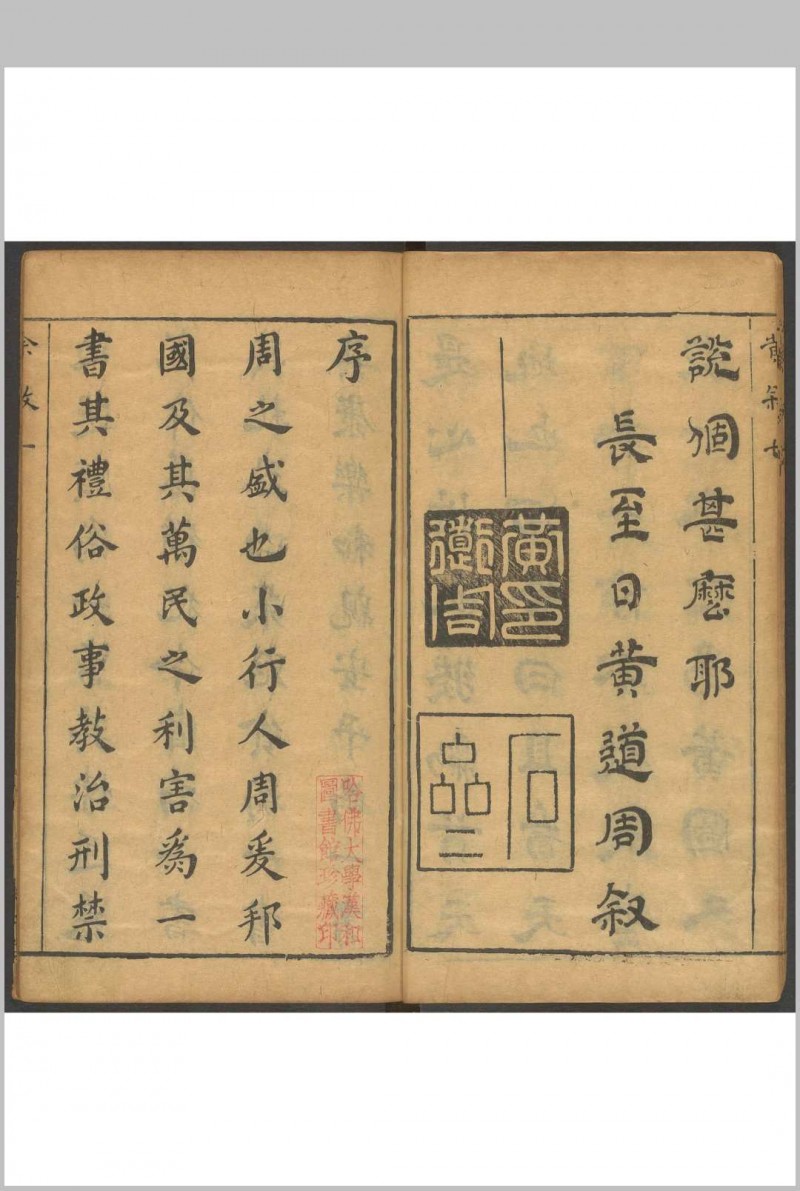 說個甚麼耶
長至日黃道周敘
黃道周印
序
周之盛也小行人周爰邦
國及其萬民之利害爲一
書其禮俗政事教治刑禁
哈佛大學漢和
圖書館珍藏印